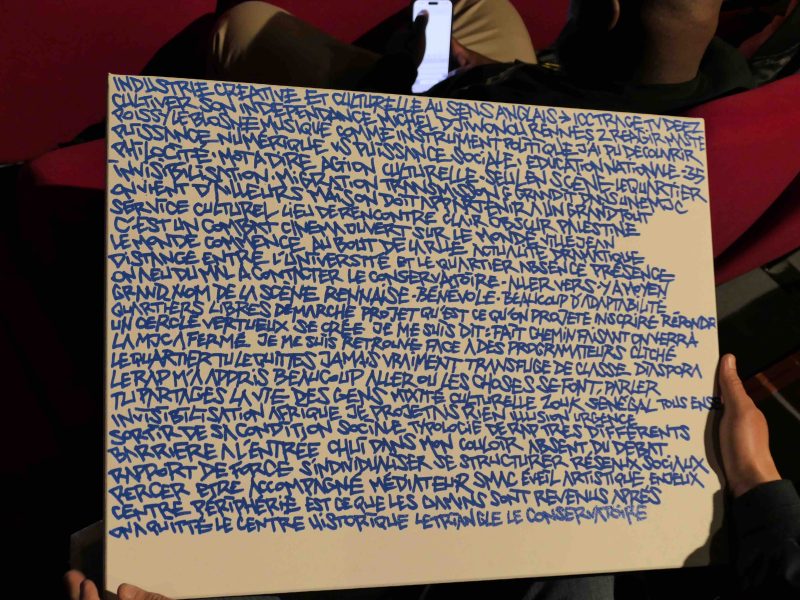 INDUSTRIE CREATIVE ET CULTURELLE AU SENS ANGLAIS → OCTRAGE TV REEZ
CULTIVER SON INDEPENDANCE MICHEL DRONNON RENNES 2 RENCONTRE
POISSY LE BLOSNE MUSIQUE COMME INSTRUMENT POLITIQUE J'AI PU DECOUVRIR
PUISSANCE NUMÉRIQUE VS PUISSANCE SOCIALE. EDUCATION NATIONALE. 3D
PUBLICITÉ. MOT A DIRE ACTION CULTURELLE. SEUL EN SCÈNE. LE QUARTIER
INVISIBILISATION. MIGRATION TRANSMISSION GRANDIT DANS UNE MJC
ON VIENT D'AILLEURS MAIS ON DOIT APPARTENIR A UN GRAND TOUT
SERVICE CULTUREL LIEU DE RENCONTRE CLAIR OBSCUR PALESTINE
C'EST UN COMBAT CINEMA OUVERT SUR LE MONDE VILLEJEAN
LE MONDE COMMENCE AU BOUT DE LA RUE ACTUALITÉ DRAMATIQUE
DISTANCE ENTRE L'UNIVERSITÉ ET LE QUARTIER ABSENCE PRÉSENCE
ON A EU DU MAL A CONTACTER LE CONSERVATOIRE. ALLER VERS. Y A MOYEN
GRAND NOM DE LA SCÈNE RENNAISE. BÉNÉVOLE. BEAUCOUP D'ADAPTABILITÉ
QUARTIERS LIBRES DÉMARCHE PROJET QU'EST CE QU'ON PROJETE INSCRIRE RÉPONDR
UN CERCLE VERTUEUX SE CRÉE JE ME SUIS DIT: FAIT CHEMIN FAISANT ON VERRA
LA MJC A FERMÉ JE ME SUIS RETROUVÉ FACE A DES PROGRAMATEURS CLICHÉ
LE QUARTIER TU LE QUITTES JAMAIS VRAIMENT TRANSFUGE DE CLASSE. DIASPORA
LE RAP M'A APPRIS BEAUCOUP ALLER OU LES CHOSES SE FONT. PARLER
TU PARTAGES LA VIE DES GENS. MIXITÉ CULTURELLE ZOUK SENEGAL TOUS ENSE
INVISIBILISATION AFRIQUE JE PROJETAIS RIEN ILLUSION URGENCE
SORTIR DE SA CONDITION SOCIALE TYPOLOGIE DE RAP TRÈS DIFFÉRENTS
BARRIÈRE A L'ENTRÉE CHUT DANS MON COULOIR ABSENT DU DÉBAT
RAPPORT DE FORCE S'INDIVIDUALISER SE STRUCTURER RÉSEAUX SOCIAUX
PERCER ETRE ACCOMPAGNÉ MÉDIATEUR SMAC EVEIL ARTISTIQUE ENJEUX
CENTRE PÉRIPHÉRIE EST CE QUE LES DAMINS SONT REVENUS APRÈS
ON A QUITTÉ LE CENTRE HISTORIQUE LE TRIANGLE LE CONSERVATOIRE